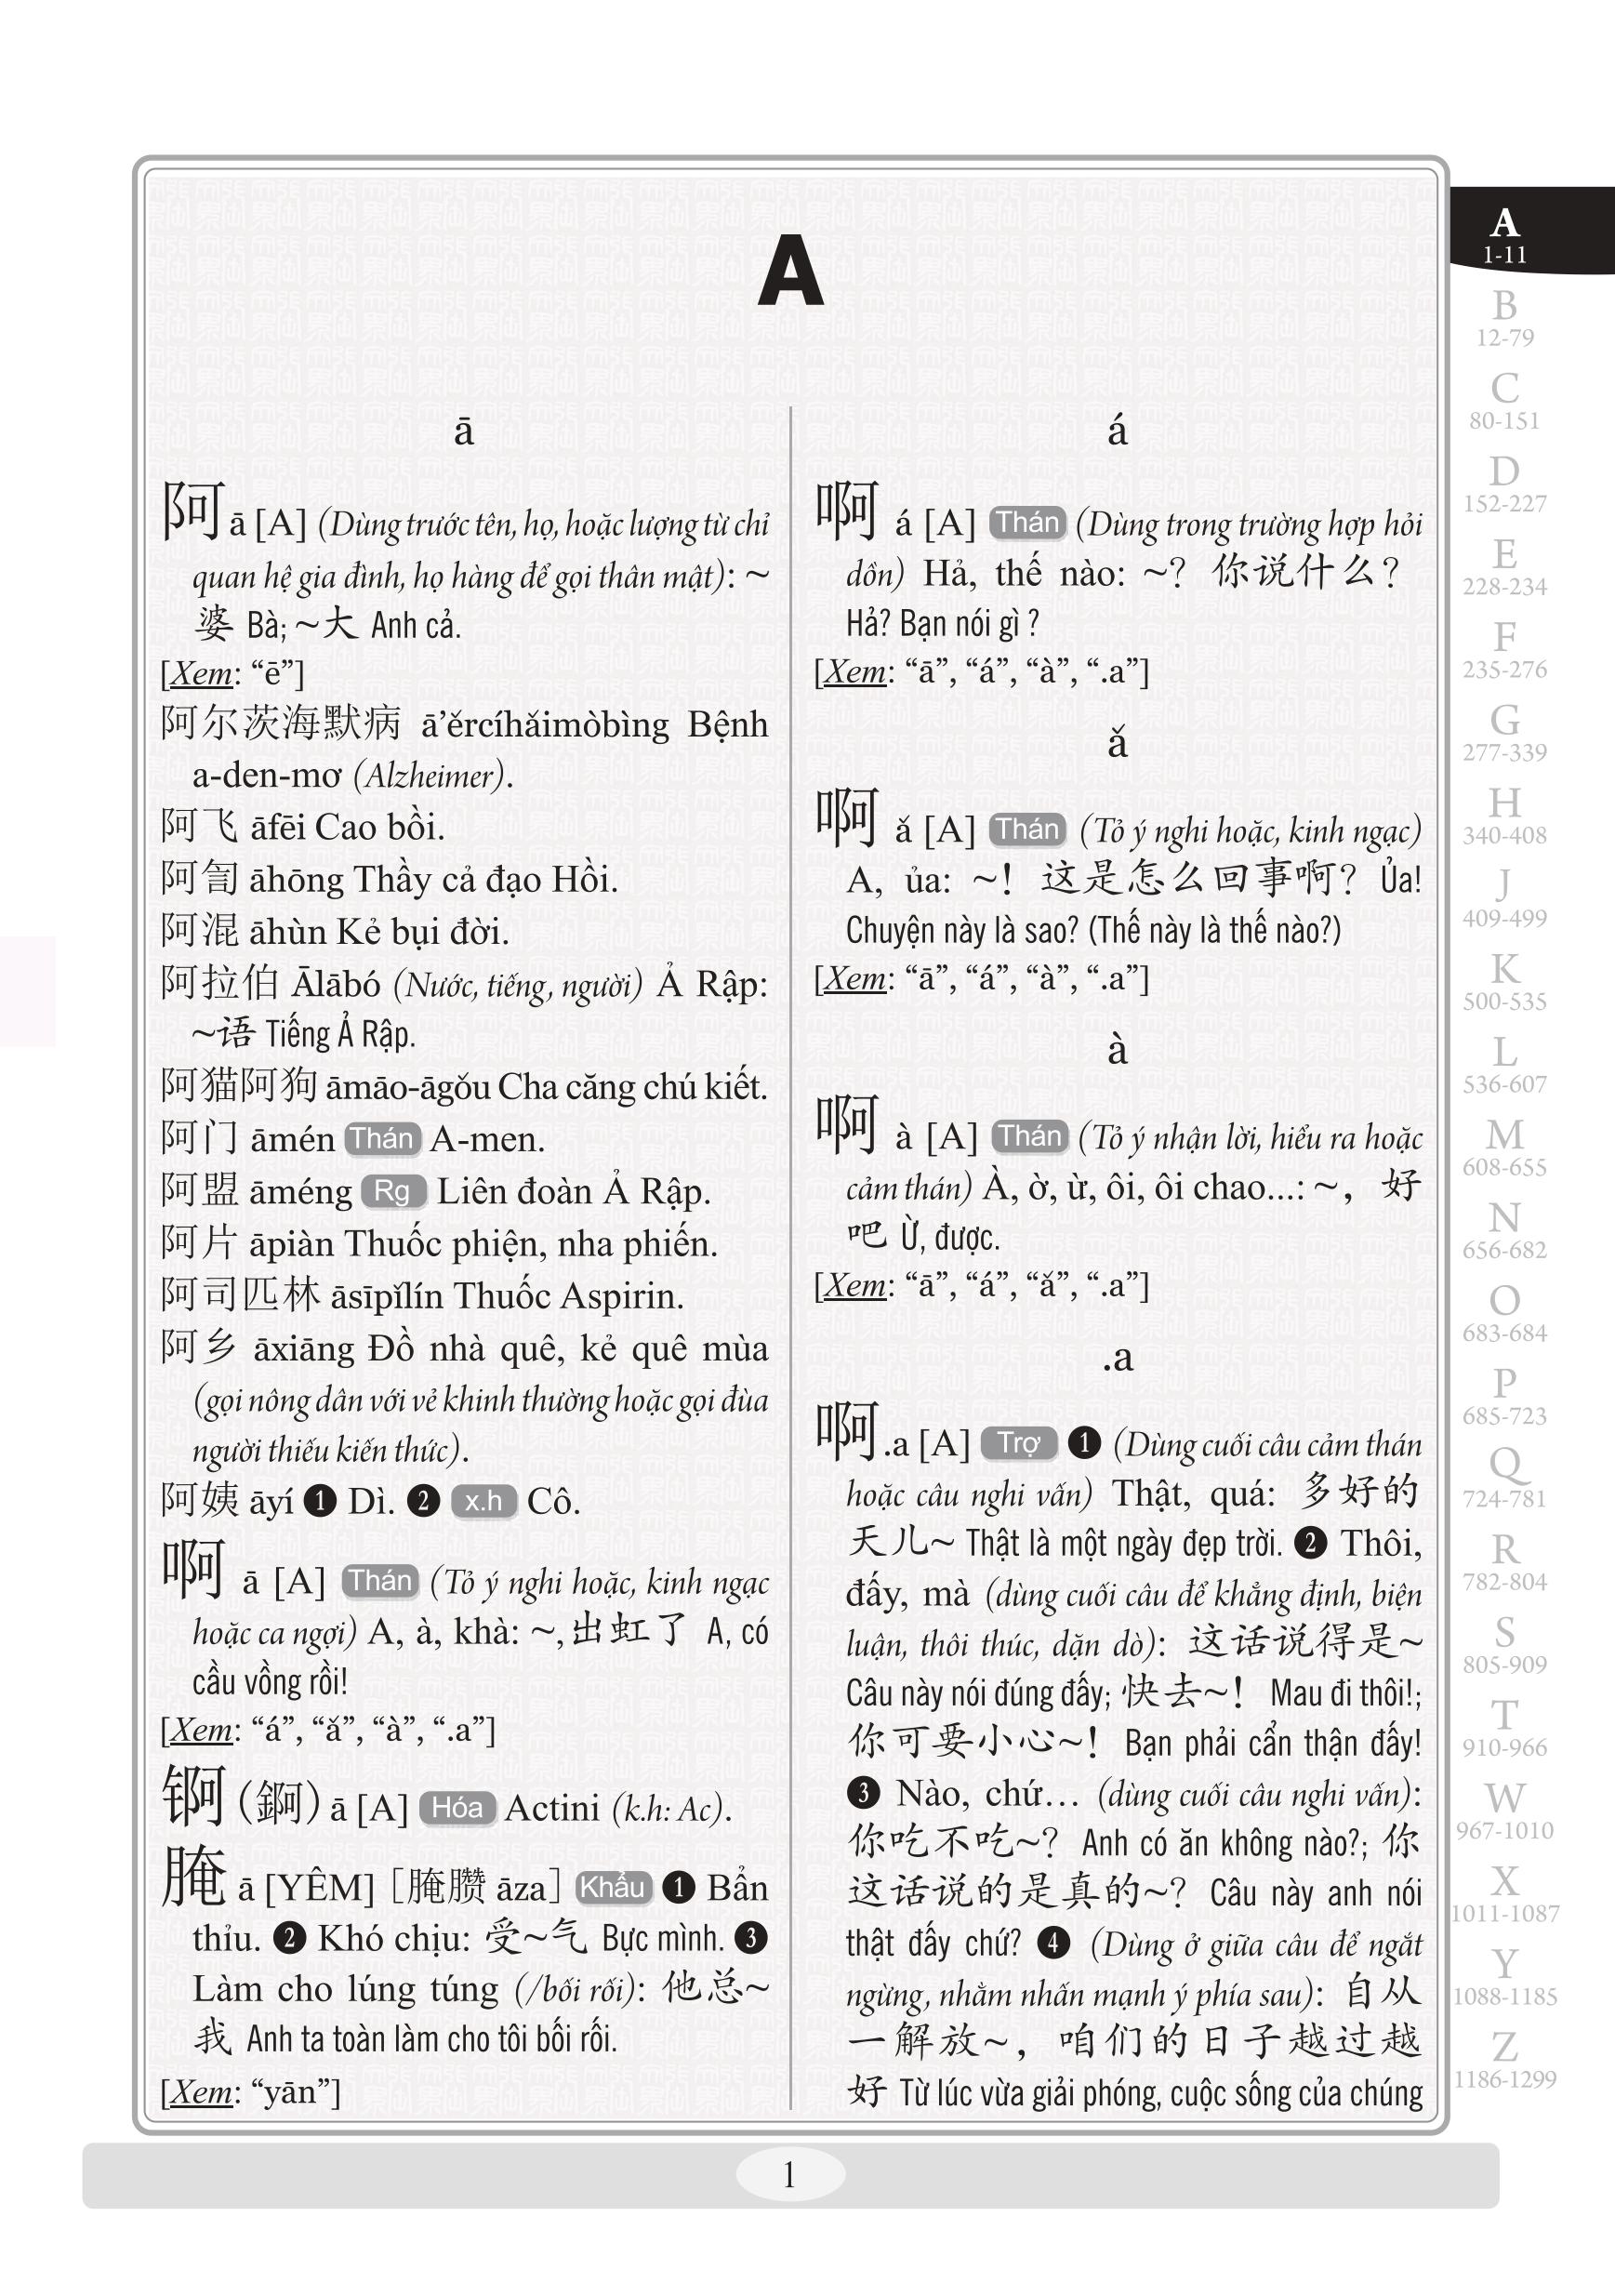 A
ā
阿 ā [A] (Dùng trước tên, họ, hoặc lượng từ chỉ
quan hệ gia đình, họ hàng để gọi thân mật): ~
婆 Bà; ~大 Anh cả.
[Xem: “ē”]
阿尔茨海默病 ā’ěrcíhǎimòbìng Bệnh
a-den-mơ (Alzheimer).
阿飞 āfēi Cao bồi.
阿訇 āhōng Thầy cả đạo Hồi.
阿混 āhùn Kẻ bụi đời.
阿拉伯 Ālābó (Nước, tiếng, người) Ả Rập:
~语 Tiếng Ả Rập.
阿猫阿狗 āmāo-āgǒu Cha căng chú kiết.
阿门 āmén Thán A-men.
阿盟 āméng Rg Liên đoàn Ả Rập.
阿片 āpiàn Thuốc phiện, nha phiến.
阿司匹林 āsīpǐlín Thuốc Aspirin.
阿乡 āxiāng Đồ nhà quê, kẻ quê mùa
(gọi nông dân với vẻ khinh thường hoặc gọi đùa
người thiếu kiến thức).
阿姨 āyí ❶ Dì. ❷ x.h Cô.
啊 ā [A] Thán (Tỏ ý nghi hoặc, kinh ngạc
hoặc ca ngợi) A, à, khà: ~,出虹了 A, có
cầu vồng rồi!
[Xem: “á”, “ǎ”, “à”, “.a”]
锕 (錒) ā [A] Hóa Actini (k.h: Ac).
腌 ā [YÊM] [腌臜 āza] Khẩu ❶ Bẩn
thỉu. ❷ Khó chịu: 受~气 Bực mình. ❸
Làm cho lúng túng (/bối rối): 他总~
我 Anh ta toàn làm cho tôi bối rối.
[Xem: “yān”]
á
啊 á [A] Thán (Dùng trong trường hợp hỏi
dồn) Hả, thế nào: ~? 你说什么?
Hả? Bạn nói gì ?
[Xem: “ā”, “á”, “à”, “.a”]
ǎ
啊 ǎ [A] Thán (Tỏ ý nghi hoặc, kinh ngạc)
A, ủa: ~! 这是怎么回事啊? Ủa!
Chuyện này là sao? (Thế này là thế nào?)
[Xem: “ā”, “á”, “à”, “.a”]
à
啊 à [A] Thán (Tỏ ý nhận lời, hiểu ra hoặc
cảm thán) À, ờ, ừ, ôi, ôi chao...: ~, 好
吧 Ừ, được.
[Xem: “ā”, “á”, “ǎ”, “.a”]
.a
啊 .a [A] Trợ ❶ (Dùng cuối câu cảm thán
hoặc câu nghi vấn) Thật, quá: 多好的
天儿~ Thật là một ngày đẹp trời. ❷ Thôi,
đấy, mà (dùng cuối câu để khẳng định, biện
luận, thôi thúc, dặn dò): 这话说得是~
Câu này nói đúng đấy; 快去~! Mau đi thôi!;
你可要小心~! Bạn phải cẩn thận đấy!
❸ Nào, chứ... (dùng cuối câu nghi vấn):
你吃不吃~? Anh có ăn không nào?; 你
这话说的是真的~? Câu này anh nói
thật đấy chứ? ❹ (Dùng ở giữa câu để ngắt
ngừng, nhằm nhấn mạnh ý phía sau): 自从
一解放~, 咱们的日子越过越
好 Từ lúc vừa giải phóng, cuộc sống của chúng
A
1-11
B
12-79
C
80-151
D
152-227
E
228-234
F
235-276
G
277-339
H
340-408
J
409-499
K
500-535
L
536-607
M
608-655
N
656-682
O
683-684
P
685-723
Q
724-781
R
782-804
S
805-909
T
910-966
W
967-1010
X
1011-1087
Y
1088-1185
Z
1186-1299
1